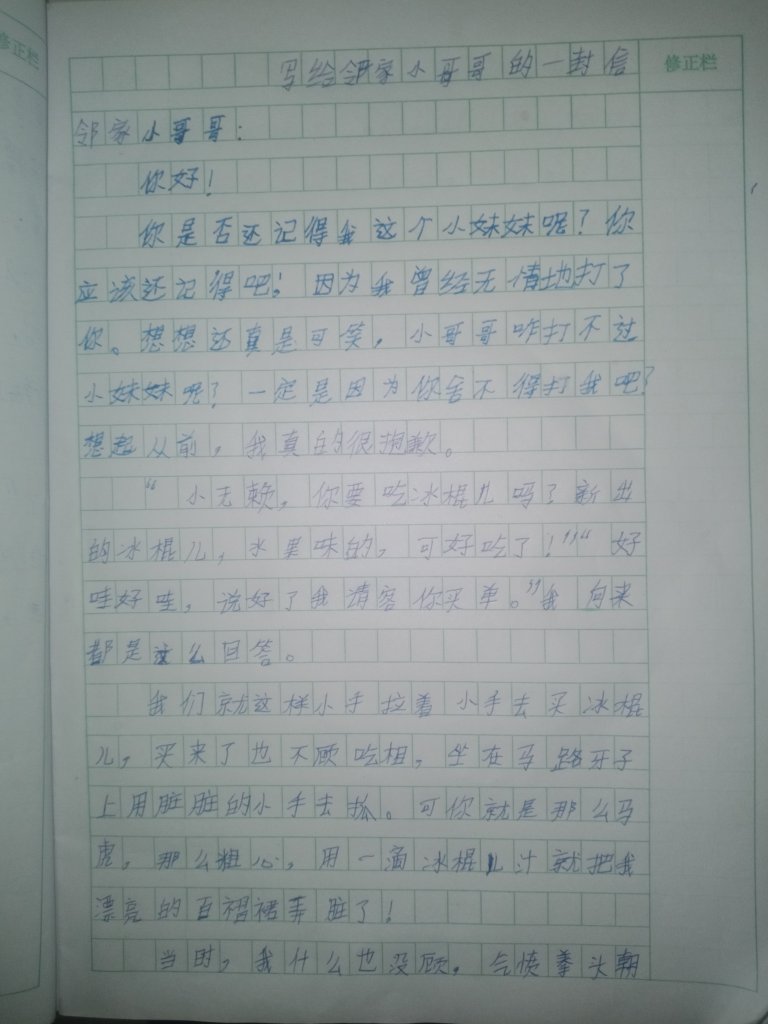 修正栏
写给邻家小哥哥的一封信
修正栏
邻家小哥哥：
你好！
你是否还记得我这个小妹妹呢？你
应该还记得吧！因为我曾经无情地打了
你。想想还真是可笑，小哥哥咋打不过
小妹妹呢？一定是因为你舍不得打我吧？
想起从前，我真的很抱歉。
“小无赖，你要吃冰棍儿吗？新出
的冰棍儿，水果味的，可好吃了！”“好
哇好哇，说好了我请客你买单。”我向来
都是这么回答。
我们就这样小手拉着小手去买冰棍
儿，买来了也不顾吃相，坐在马路牙子
上用脏脏的小手去抓。可你就是那么马
虎，那么粗心，用一滴冰棍儿汁就把我
漂亮的百褶裙弄脏了！
当时，我什么也没顾，气愤拳头朝